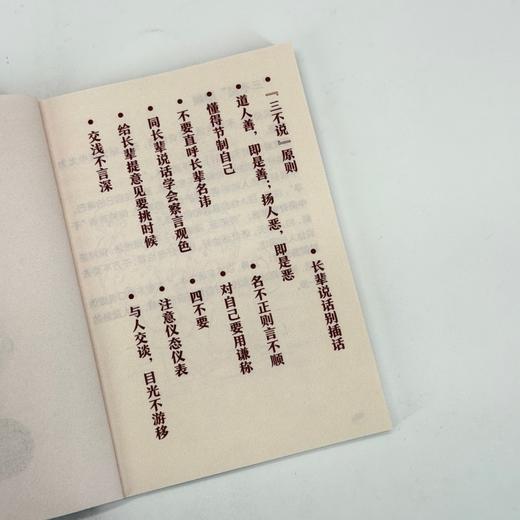 • 『三不说』原则
• 道人善，即是善；扬人恶，即是恶
• 懂得节制自己
• 不要直呼长辈名讳
• 同长辈说话学会察言观色
• 给长辈提意见要挑时候
• 交浅不言深
• 长辈说话别插话
• 名不正则言不顺
• 对自己要用谦称
• 四不要
• 注意仪态仪表
• 与人交谈，目光不游移